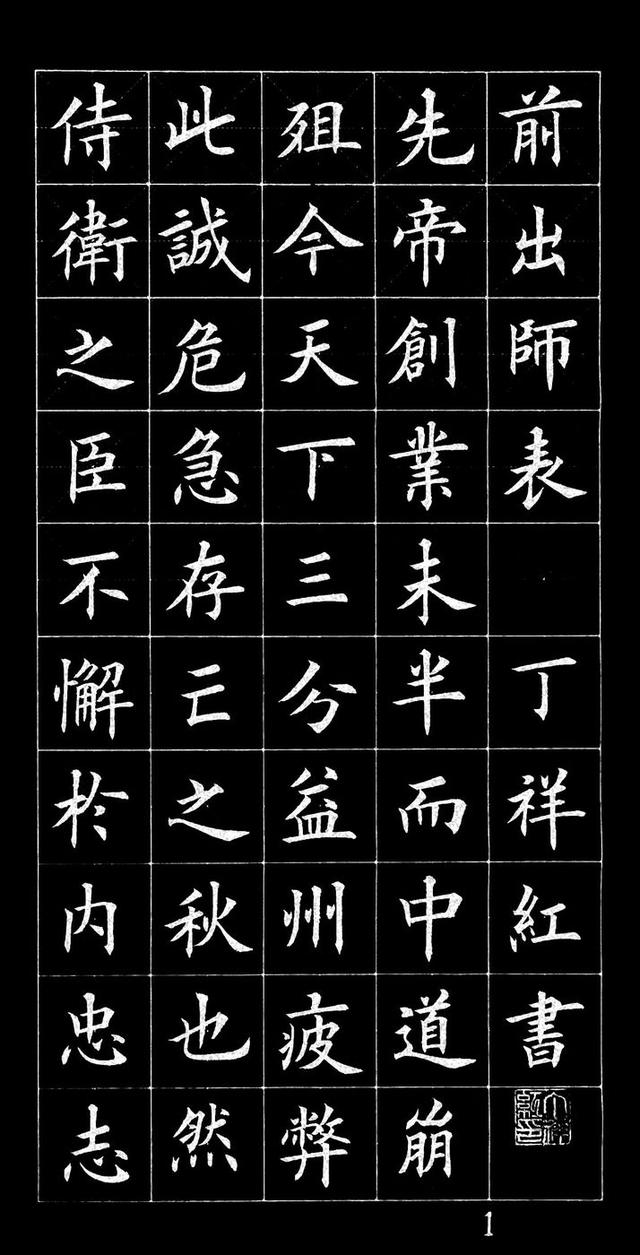 前出師表 丁祥紅書
先帝創業未半而中道崩
殂今天下三分益州疲弊
此誠危急存亡之秋也然
侍衛之臣不懈於内忠志
1